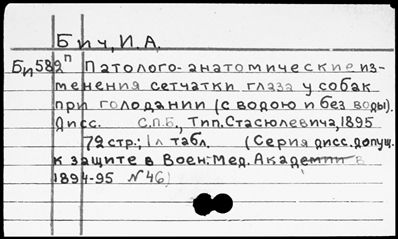 Бич, И.А.
Би582п Патолого-анатомические из-
менения сетчатки глаза у собак
при голодании (с водою и без воды).
Дисс. С.П.Б., Тип. Стасюлевича, 1895
72 стр.; 1л табл. (Серия дисс. допущ.
к защите в Воен.-Мед. Академии в
1894-95 №46)